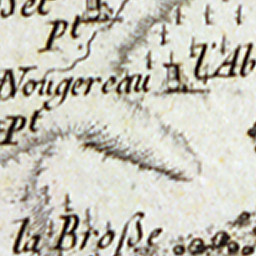 pt.
Nougereau
l'Ab
pt
la Broſse